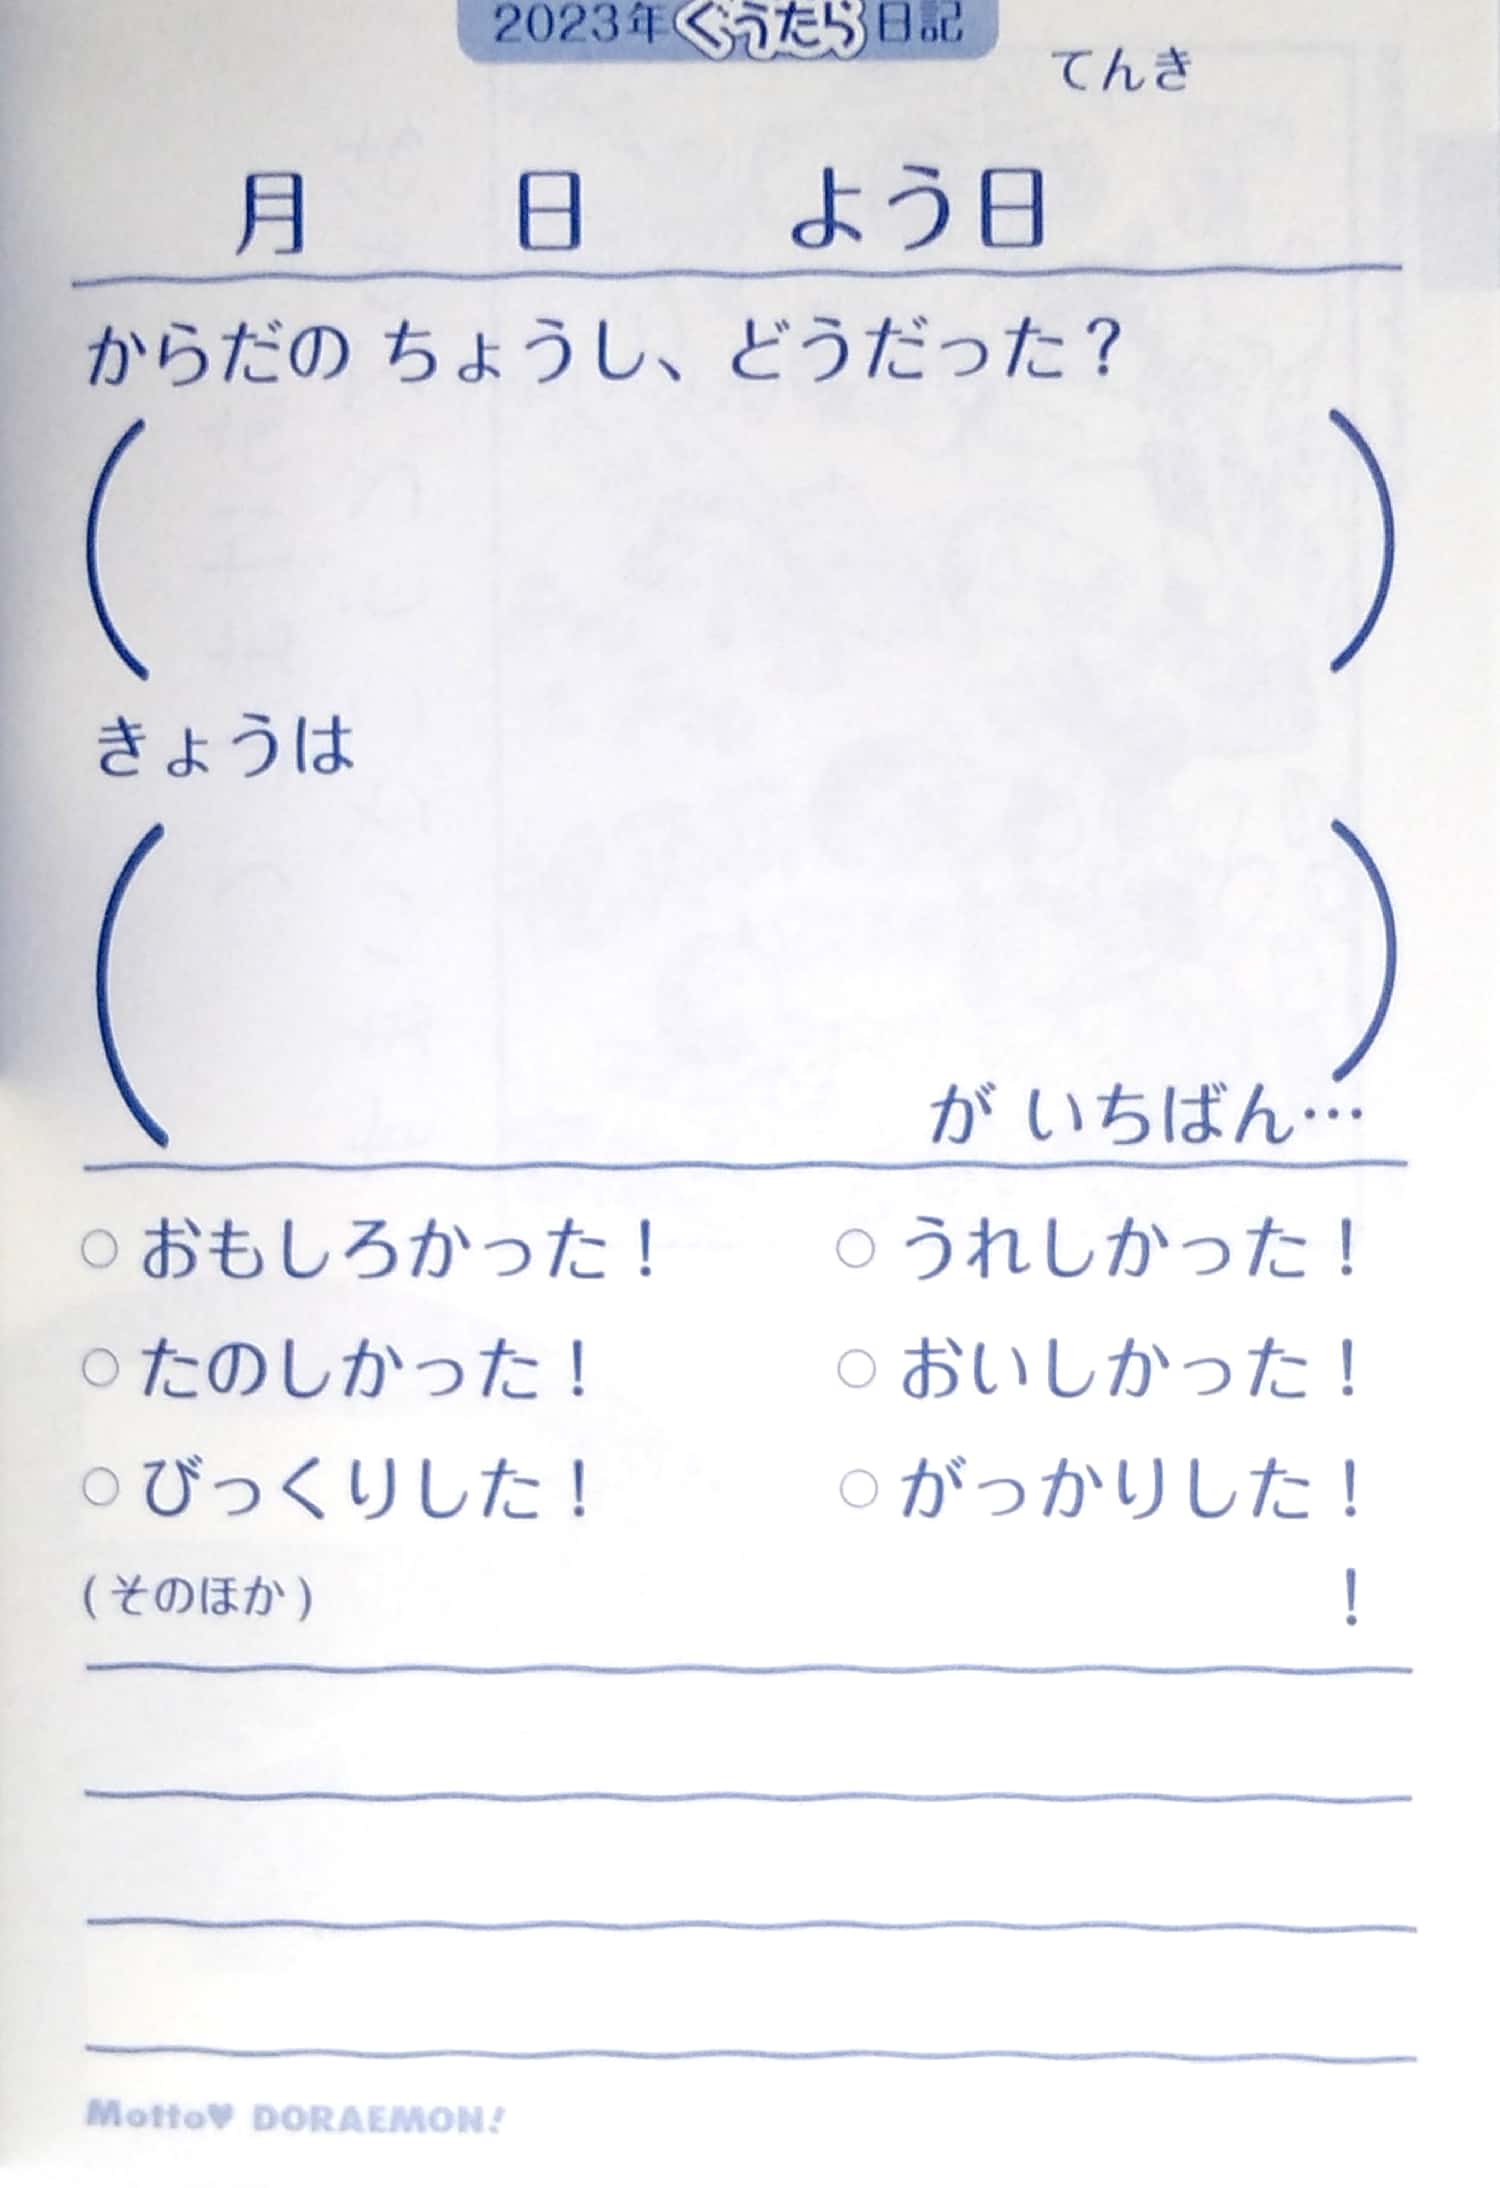 2023年ぐうたら日記
てんき
月 日 よう日
からだの ちょうし、どうだった？
( )
きょうは
( )
が いちばん…
○ おもしろかった！ ○ うれしかった！
○ たのしかった！ ○ おいしかった！
○ びっくりした！ ○ がっかりした！
(そのほか) ！
Motto♥ DORAEMON!